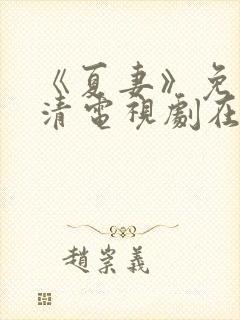 《夏妻》免
清電視劇在
趙崇義